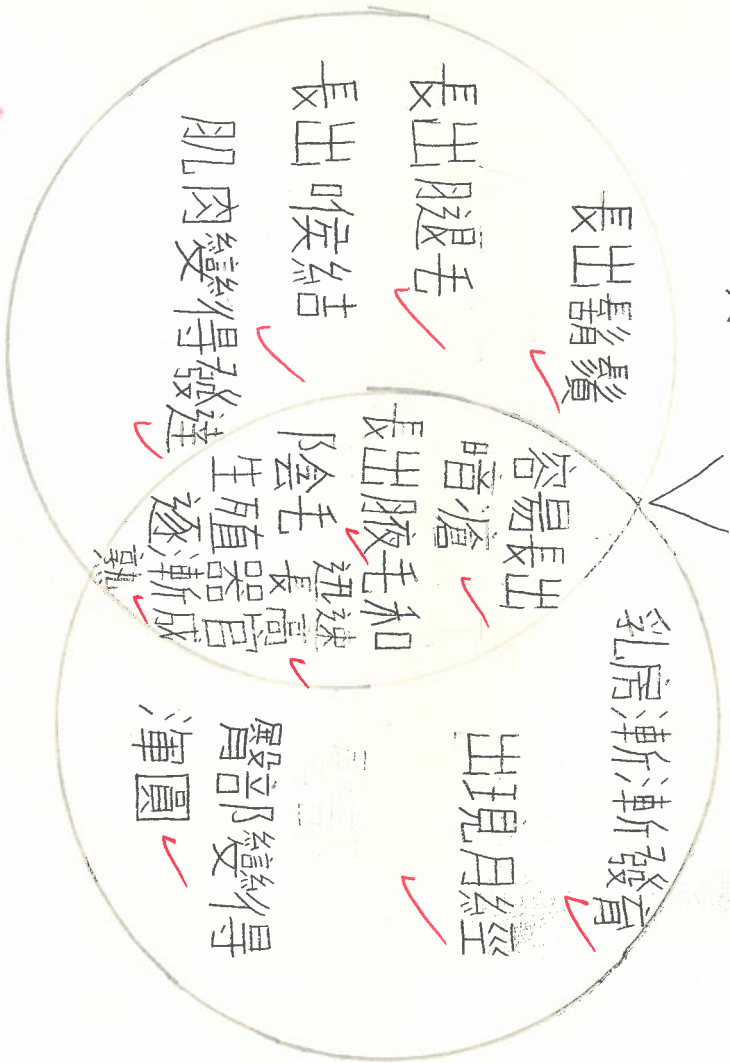 長出鬍鬚
長出腿毛
長出喉結
肌肉變得發達
容易長出
暗滄
長出腋毛和
陰毛
迅速
長高
生殖器官
逐漸成
熟
乳房漸漸發育
出現月經
臀部變得
渾圓